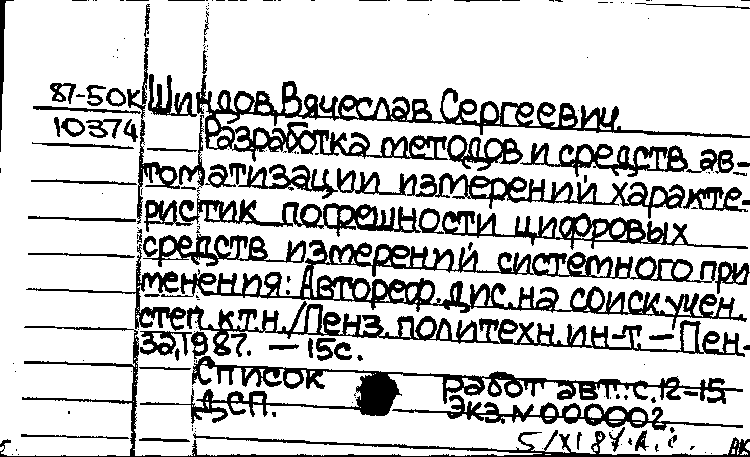 87-50К Шиндов, Вячеслав Сергеевич.
10374 Разработка методов и средств ав-
томатизации измерений характе-
ристик погрешности цифровых
средств измерений системного при
менения: Автореф. дис. на соиск. учен.
степ. к.т.н. / Пенз. политехн. ин-т. — Пен-
за, 1987. — 15с.
Список работ авт.: с. 12-15.
ДСП. Экз. N 000002.
5/XI 87.